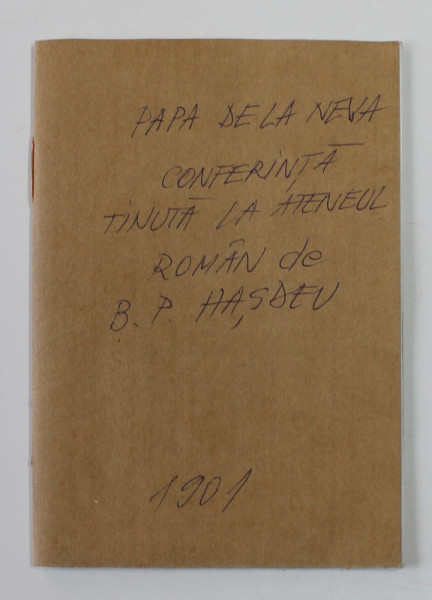 PAPA DE LA NEVA
CONFERINȚĂ
ȚINUTĂ LA ATENEUL
ROMÂN de
B. P. HAȘDEU
1901